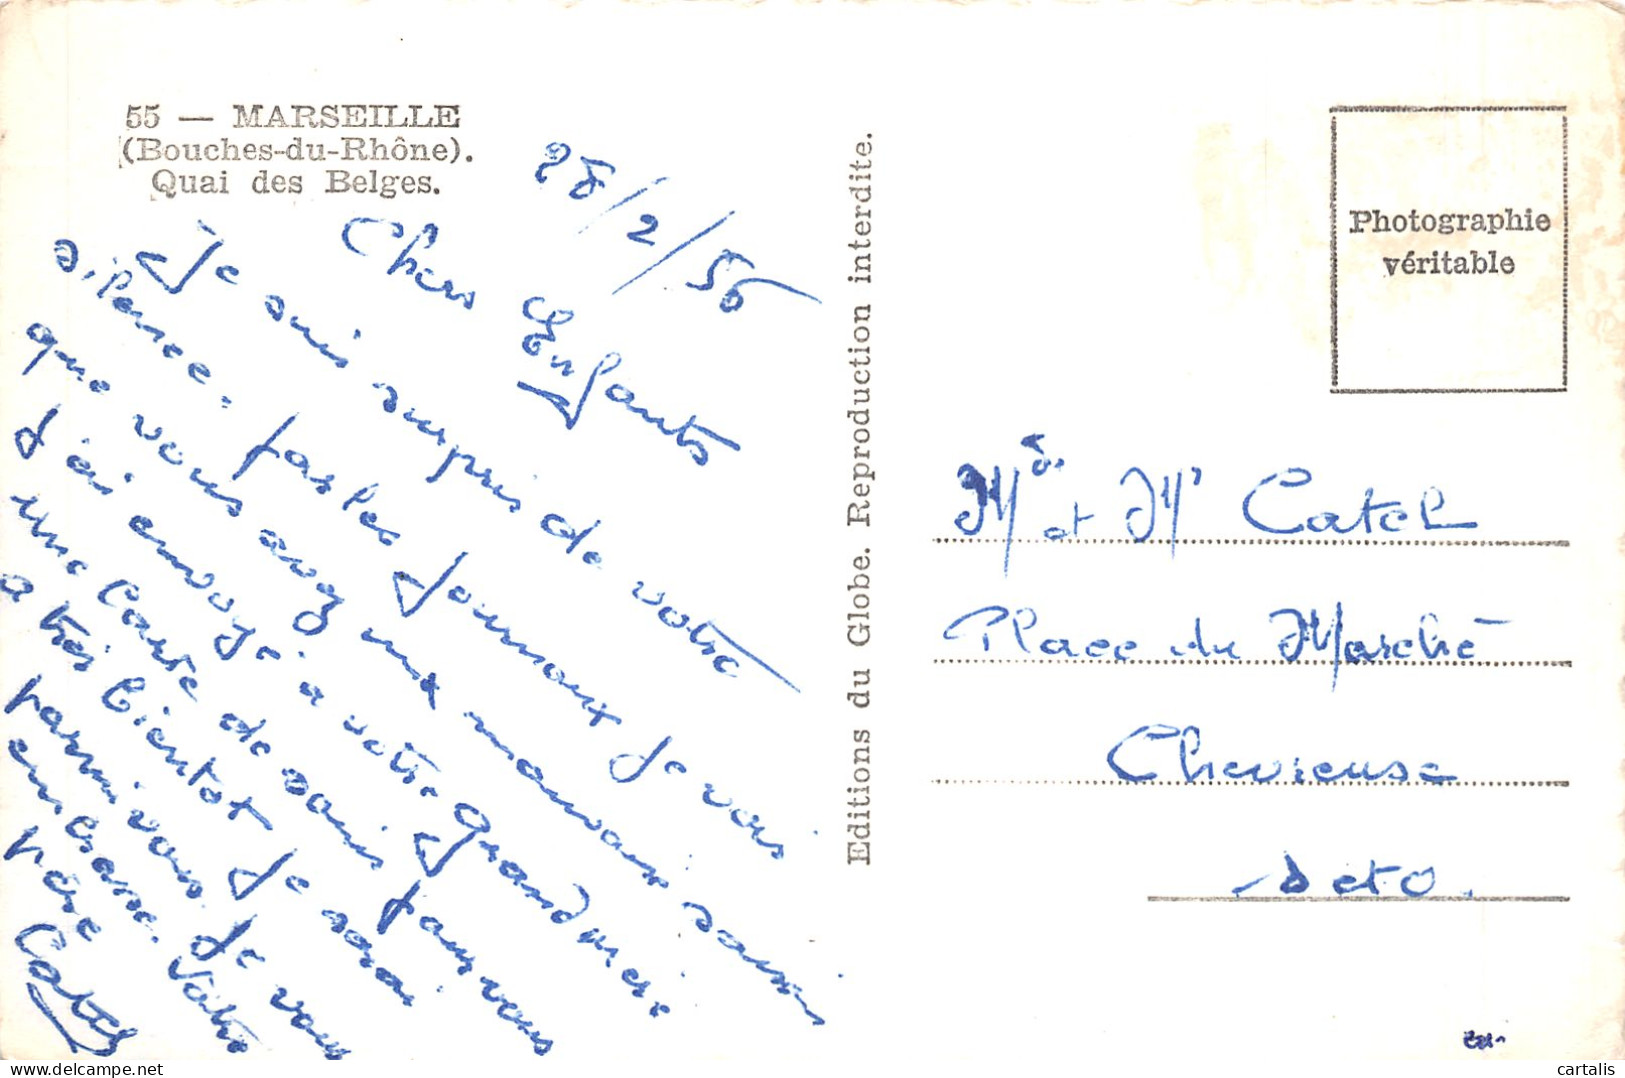 55 — MARSEILLE
(Bouches-du-Rhône).
Quai des Belges.
28/2/56
Chers Enfants
Je suis surpris de votre
silence. par les journaux je vois
que vous avez une mauvaise saison
J'ai envoyé à votre grand mère
une Carte de sains pour vous
a très bientot je serai
parmi vous. Je vous
embrasse. Votre
père
Catel
Editions du Globe. Reproduction interdite.
Photographie
véritable
Md. et Mr Catel
Place du Marché
Chevreuse
S et O.
cartalis